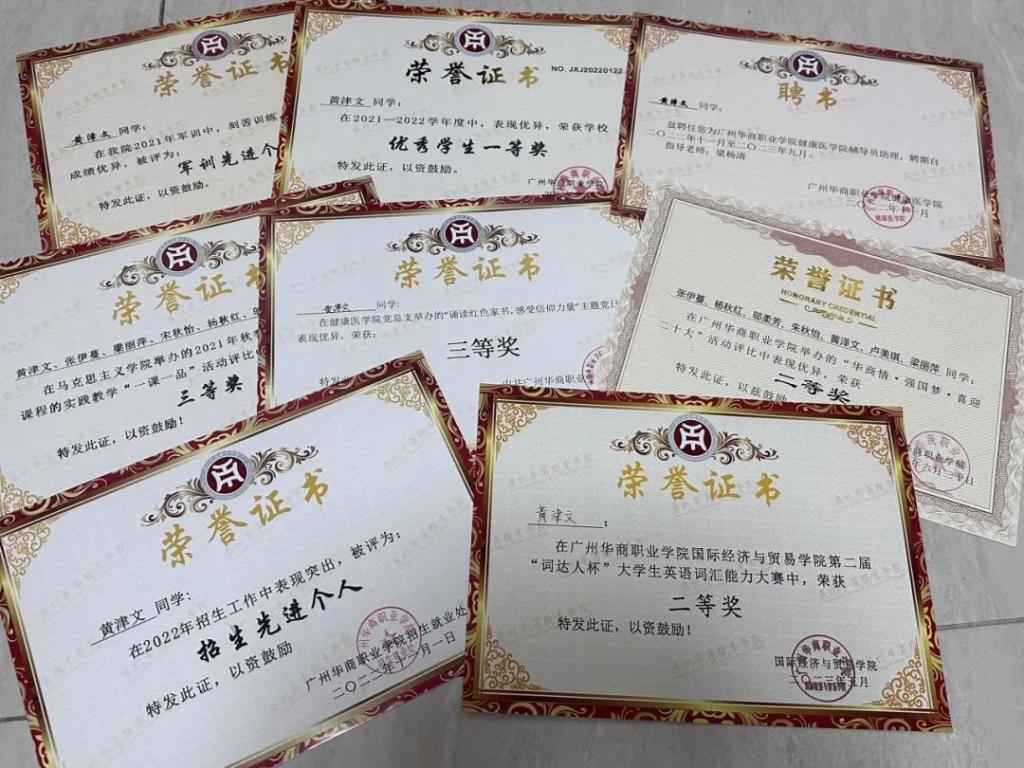 荣誉证书
黄津文 同学:
在我院2021年军训中，刻苦训练
成绩优异，被评为:
军训先进个
特发此证，以资鼓励。
荣誉证书
NO. JXJ20220122
黄津文 同学:
在2021—2022学年度中，表现优异，荣获学校
优秀学生一等奖
特发此证，以资鼓励。
广州华商职业学院
聘书
黄津文 同学:
兹聘任您为广州华商职业学院健康医学院辅导员助理，聘期自
二〇二二年十一月至二〇二三年九月。
指导老师: 梁杨清
广州华商职业学院健康医学院
健康医学院
荣誉证书
黄津文、张伊蔓、梁丽萍、宋秋怡、杨秋红、
在马克思主义学院举办的2021年秋季
课程的实践教学“一课一品”活动评比
三等奖
特发此证，以资鼓励！
荣誉证书
黄津文 同学:
在健康医学院党总支举办的“诵读红色家书，感受信仰力量”主题党日
表现优异，荣获:
三等奖
中共广州华商职业
荣誉证书
HONORARY CREDENTIAL
张伊蔓、杨秋红、邬柔芳、朱秋怡、黄泽文、卢美琪、梁丽萍 同学:
在广州华商职业学院举办的“华商情·强国梦·喜迎
二十大”活动评比中表现优异，荣获
二等奖
特发此证，以兹鼓励
商职业学院
年六月二十日
荣誉证书
黄津文 同学:
在2022年招生工作中表现突出，被评为:
招生先进个人
特发此证，以资鼓励
广州华商职业学院招生就业处
二〇二二年十一月一日
荣誉证书
黄津文 :
在广州华商职业学院国际经济与贸易学院第二届
“词达人杯”大学生英语词汇能力大赛中，荣获
二等奖
特发此证，以资鼓励！
国际经济与贸易学院
二〇二三年五月